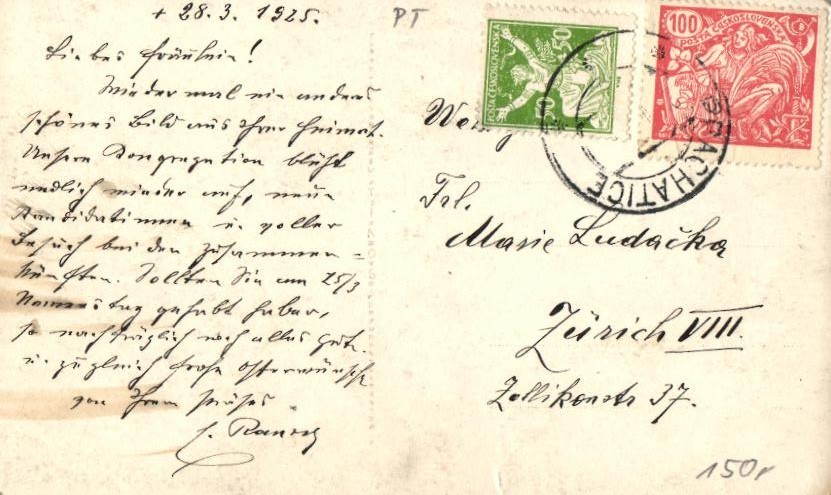 + 28. 3. 1925.
PT
Liebes Fräulein!
Wieder mal ein anderes
schönes Bild aus Ihrer Heimat.
Unsere Kongregation blüht
endlich wieder auf, neue
Kandidatinnen u. voller
Besuch bei den Zusammen=
künften. Sollten Sie am 25/3
Namenstag gehabt haben,
so nachträglich noch alles Gute
u. zugleich frohe Osterwünsche
von Ihrem Präses
50
50
POSTA ČESKOSLOVENSKÁ
100
POSTA ČESKOSLOVENSKA
PRACHATICE
Frl.
Marie Ludačka
Zürich VIII.
Zollikonstr 37.
150,